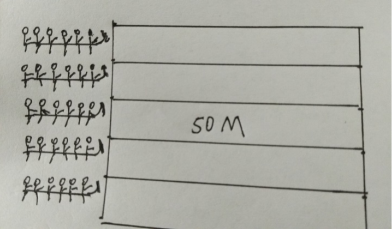 50 M